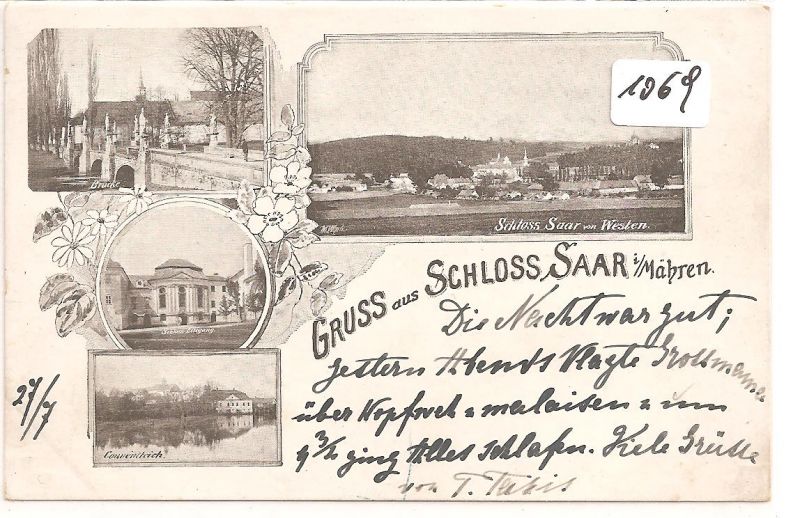 1069
Brücke
Schloss Saar von Westen.
Schloss Eingang.
Conventteich.
GRUSS aus SCHLOSS SAAR i/Mähren.
27/7
Die Nacht war gut;
gestern Abends klagte Großmama
über Kopfweh u malaisen u um
9 3/4 ging Alles schlafen. Viele Grüße
von T.